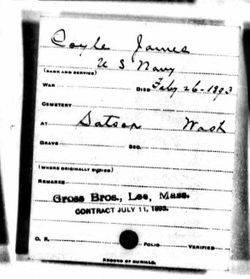 Coyle James
U S Navy
(RANK AND SERVICE)
WAR DIED Feby 26-1893
CEMETERY
AT Satsop Wash
GRAVE SEC.
(WHERE ORIGINALLY BURIED)
REMARKS
Gross Bros., Lee, Mass.
CONTRACT JULY 11, 1893.
O. R. FOLIO VERIFIED
RECORD OF BURIALS.